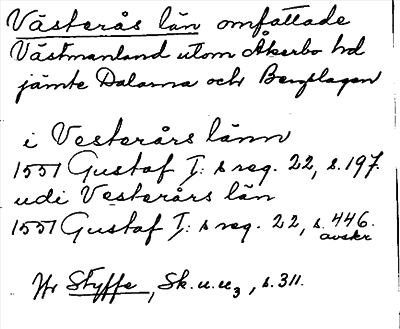 Västerås län omfattade
Västmanland utom Åkerbo hd
jämte Dalarna och Bergslagen
i Vesterårs länn
1551 Gustaf I: s reg. 22, s. 197.
udi Vesterårs län
1551 Gustaf I: s reg. 22, s. 446.
avskr
Jfr Styffe, Sk. u. u3, s. 311.